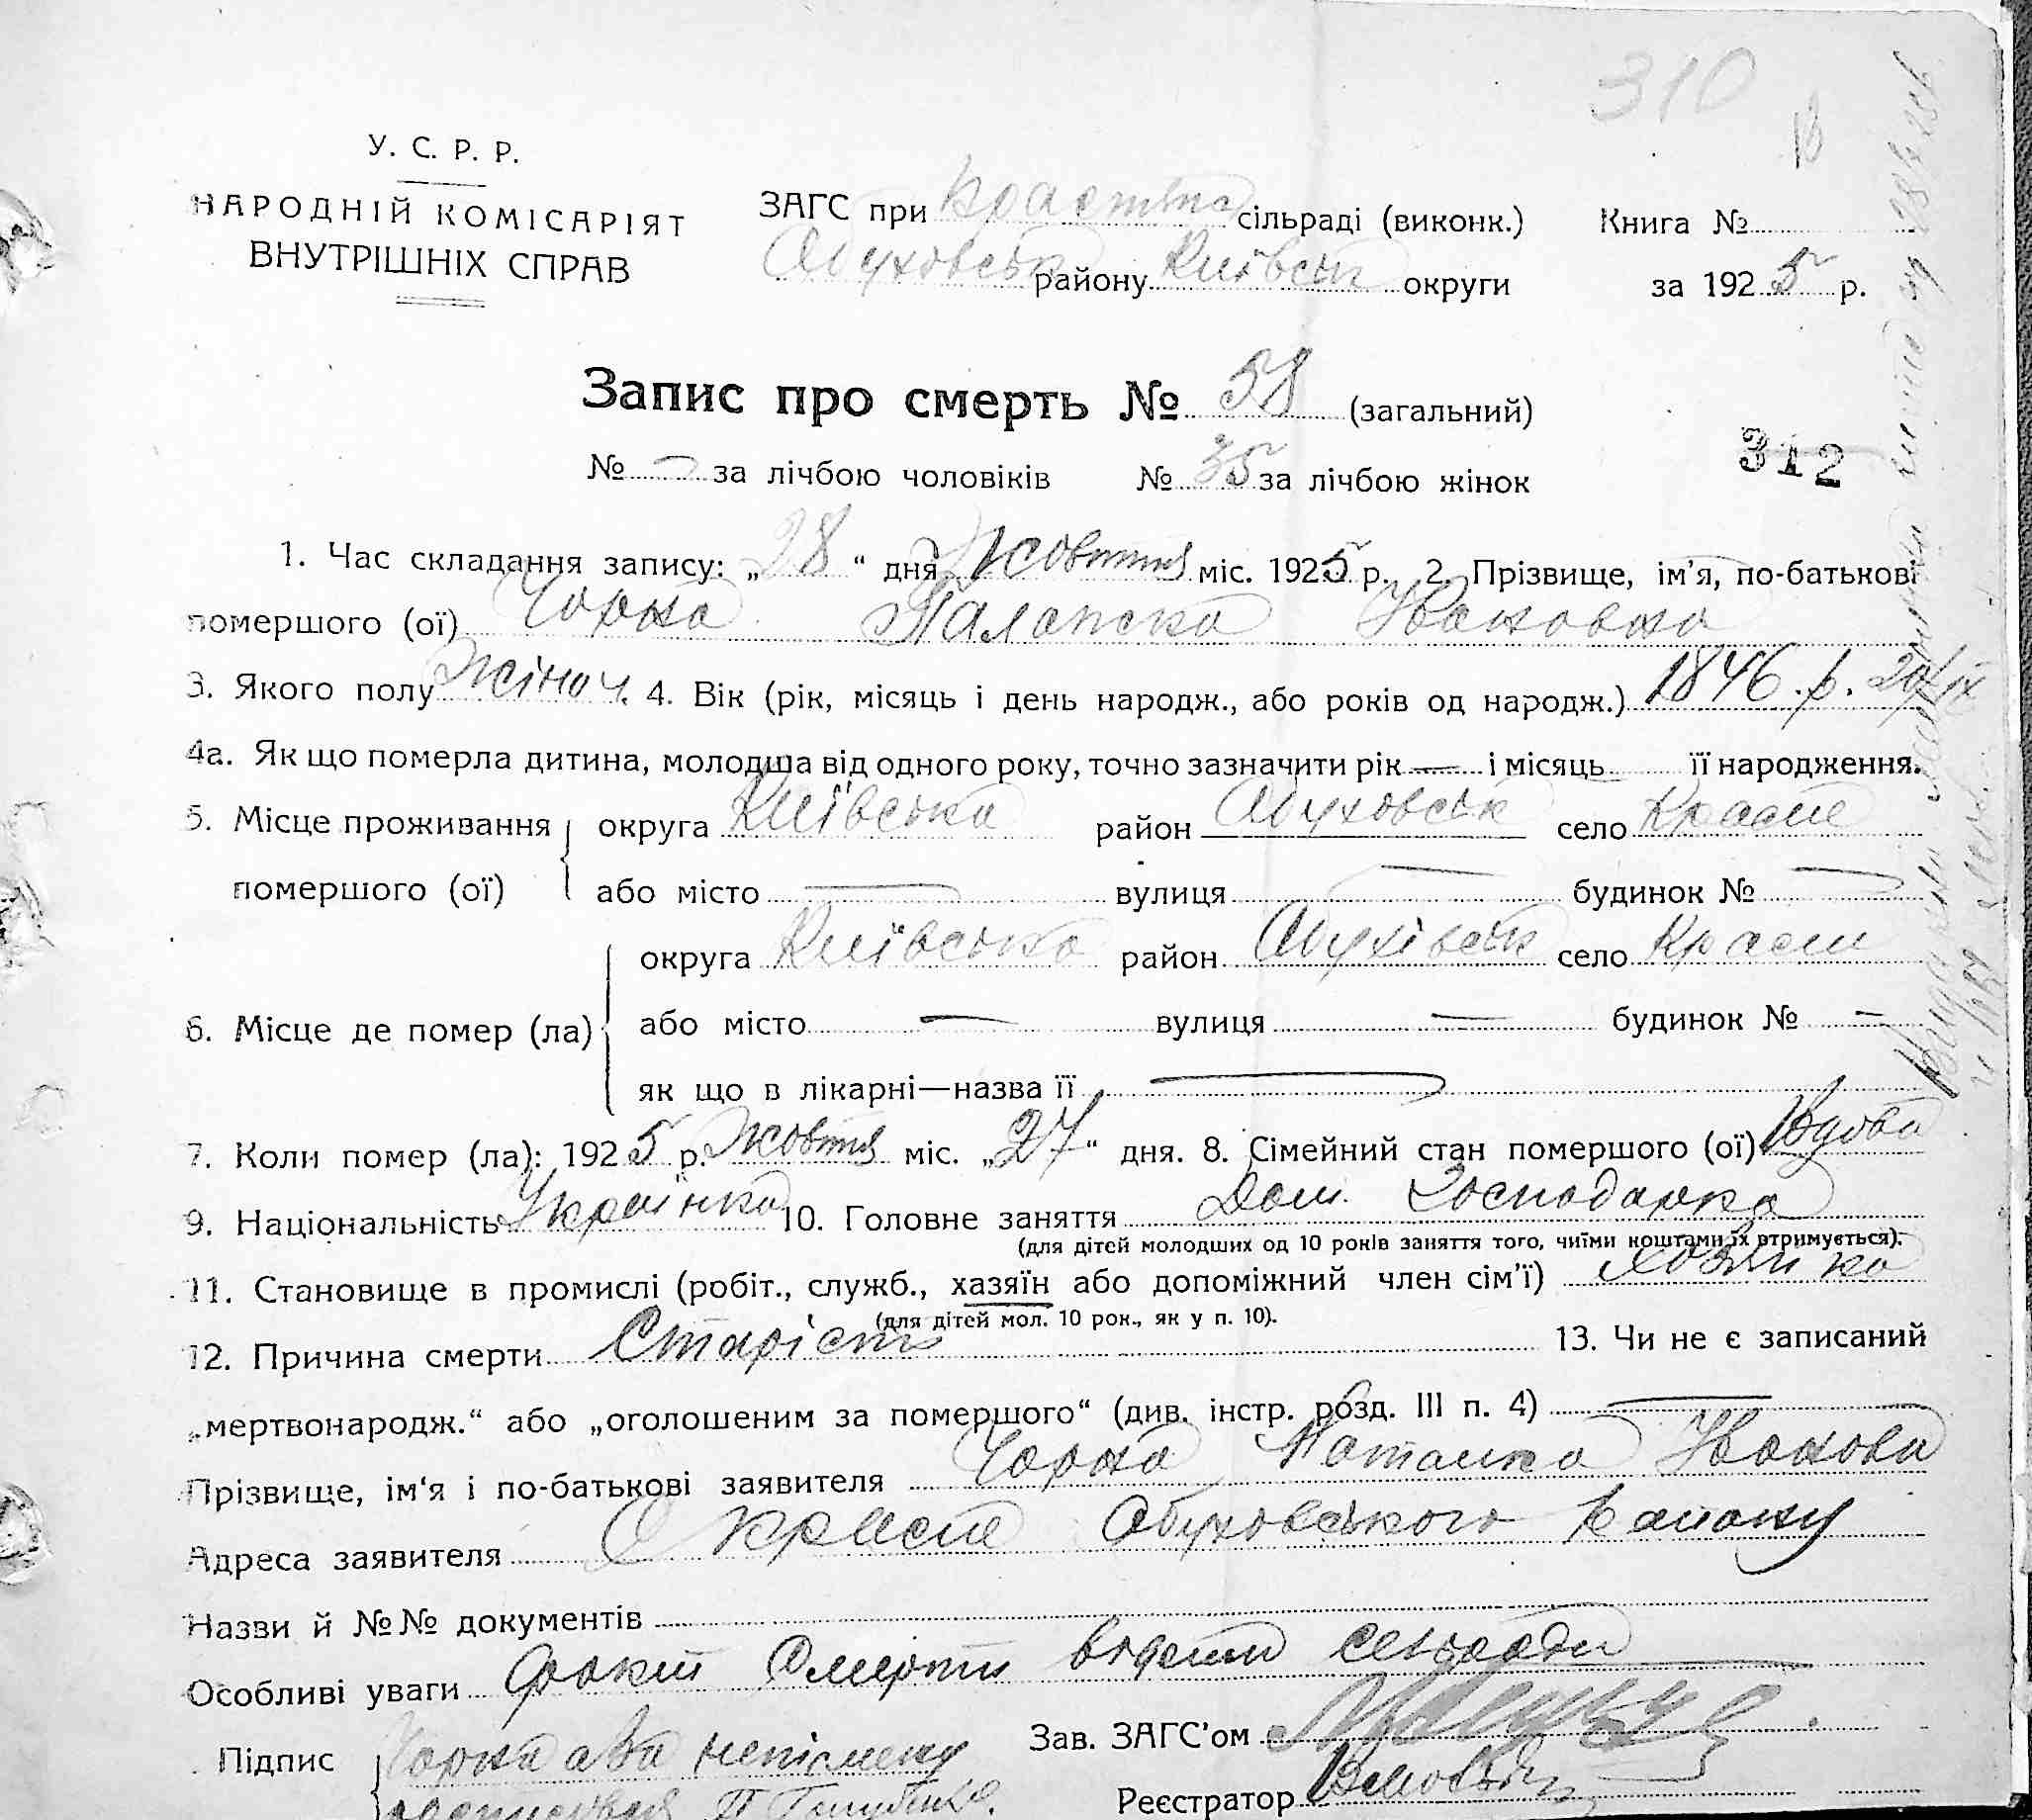 310
У. С. Р. Р.
НАРОДНІЙ КОМІСАРІЯТ
ВНУТРІШНІХ СПРАВ
ЗАГС при сільраді (виконк.) Книга №
Обуховськ району Київськ округи за 1925 р.
Запис про смерть № 58 (загальний)
№ — за лічбою чоловіків № 35 за лічбою жінок
312
1. Час складання запису: „28“ дня Жовтня міс. 1925 р. 2. Прізвище, ім'я, по-батькові
помершого (ої) Чорна Палапска Івановна
3. Якого полу Жіноч. 4. Вік (рік, місяць і день народж., або років од народж.) 1846.р. 20/IX
4а. Як що померла дитина, молодша від одного року, точно зазначити рік — і місяць її народження.
5. Місце проживання округа Київська район Обуховськ село Красне
помершого (ої) або місто — вулиця — будинок № —
округа Київська район Обухівськ село Красн
6. Місце де помер (ла) або місто — вулиця — будинок № —
як що в лікарні—назва її —
7. Коли помер (ла): 1925 р. Жовтня міс. „27“ дня. 8. Сімейний стан помершого (ої) Вдова
9. Національність Українка 10. Головне заняття Дом. Господарка
(для дітей молодших од 10 років заняття того, чиїми коштами їх втримується).
11. Становище в промислі (робіт., служб., хазяїн або допоміжний член сім'ї) Хозяйка
(для дітей мол. 10 рок., як у п. 10).
12. Причина смерти Старість 13. Чи не є записаний
„мертвонародж.“ або „оголошеним за помершого“ (див. інстр. розд. III п. 4) —
Прізвище, ім'я і по-батькові заявителя Чорна Наталка Іванова
Адреса заявителя С Красне Обуховського Району
Назви й №№ документів
Особливі уваги Факт Смерти відомий сельради
Підпис Чорна а за неписмену
Зав. ЗАГС'ом
Реєстратор